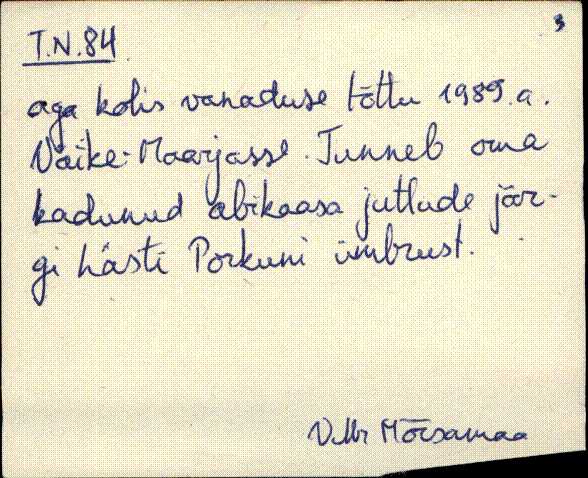 3
T.N.84
aga kolis vanaduse tõttu 1989.a.
Väike-Maarjasse. Tunneb oma
kadunud abikaasa jutlude jär-
gi hästi Porkuni ümbrust.
Mõrsamaa